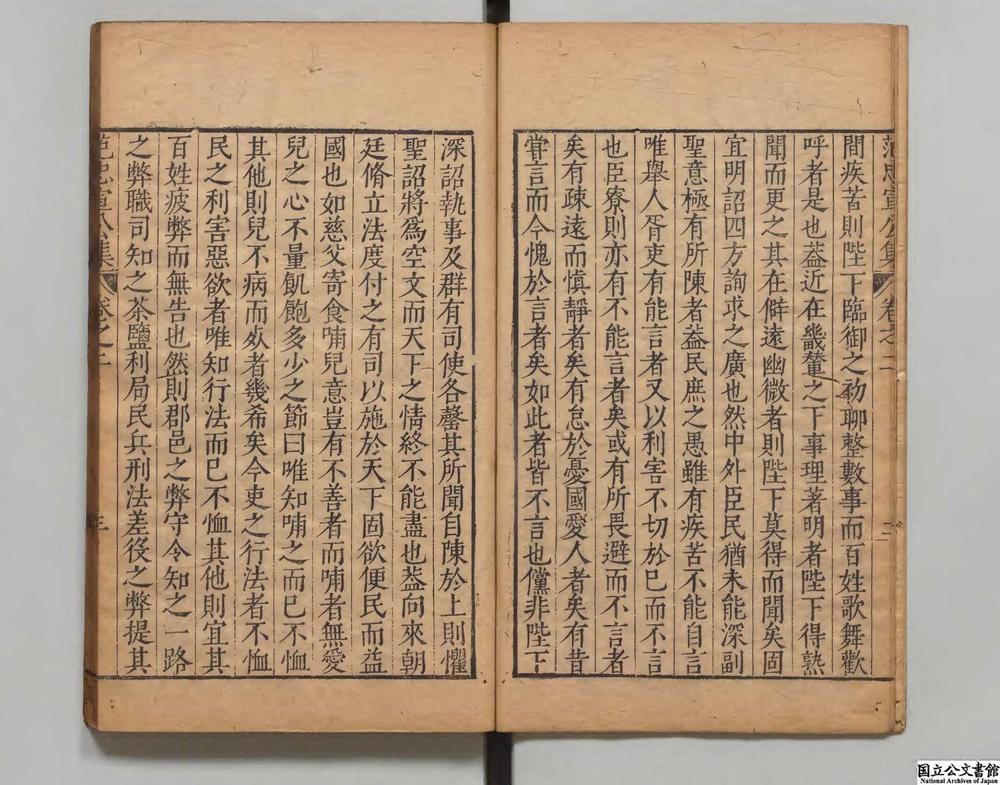 范忠宣公集 卷之二
間疾苦則陛下臨御之初聊整數事而百姓歌舞歡
呼者是也葢近在畿輦之下事理著明者陛下得熟
聞而更之其在僻遠幽微者則陛下莫得而聞矣固
宜明詔四方詢求之廣也然中外臣民猶未能深副
聖意極有所陳者葢民庶之愚雖有疾苦不能自言
唯舉人胥吏有能言者又以利害不切於已而不言
也臣寮則亦有不能言者矣或有所畏避而不言者
矣有疎遠而慎靜者矣有怠於憂國愛人者矣有昔
嘗言而今愧於言者矣如此者皆不言也儻非陛下
深詔執事及群有司使各罄其所聞自陳於上則懼
聖詔將爲空文而天下之情終不能盡也葢向來朝
廷脩立法度付之有司以施於天下固欲便民而益
國也如慈父寄食哺兒意豈有不善者而哺者無愛
兒之心不量飢飽多少之節曰唯知哺之而已不恤
其他則兒不病而㱙者幾希矣今吏之行法者不恤
民之利害惡欲者唯知行法而已不恤其他則宜其
百姓疲弊而無告也然則郡邑之弊守令知之一路
之弊職司知之茶鹽利局民兵刑法差役之弊提其
范忠宣公集 卷之二 三
国立公文書館
National Archives of Japan